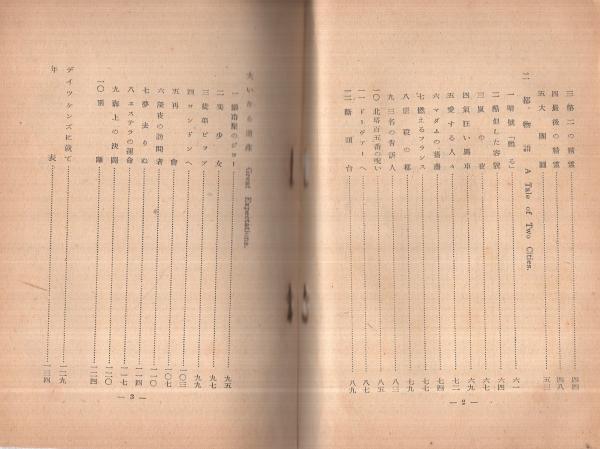 三 第二の精霊 四四
四 最後の精霊 四八
五 大團圓 五三
二都物語 A Tale of Two Cities.
一 暗號「甦る」 六一
二 酷似した容貌 六四
三 嵐の夜 六七
四 氣狂い馬車 六九
五 愛する人々 七二
六 マダムの薔薇 七四
七 燃えるフランス 七九
八 恐殺の都
九 三名の告訴人 八三
一〇 北塔百五番の呪い 八五
一一 ドーヴァーへ 八七
一二 斷頭台 八九
— 2 —
大いなる遺産 Great Expectations.
一 鍛冶屋のジョー 九五
二 美少女 九七
三 徒弟ピップ 九九
四 ロンドンへ 一〇三
五 再會 一〇七
六 深夜の訪問者 一一〇
七 夢去りぬ 一一四
八 エステラの運命 一一七
九 海上の決鬪 一二〇
一〇 別離 一二四
デイツケンズに就て 一二九
年表 一三四
— 3 —